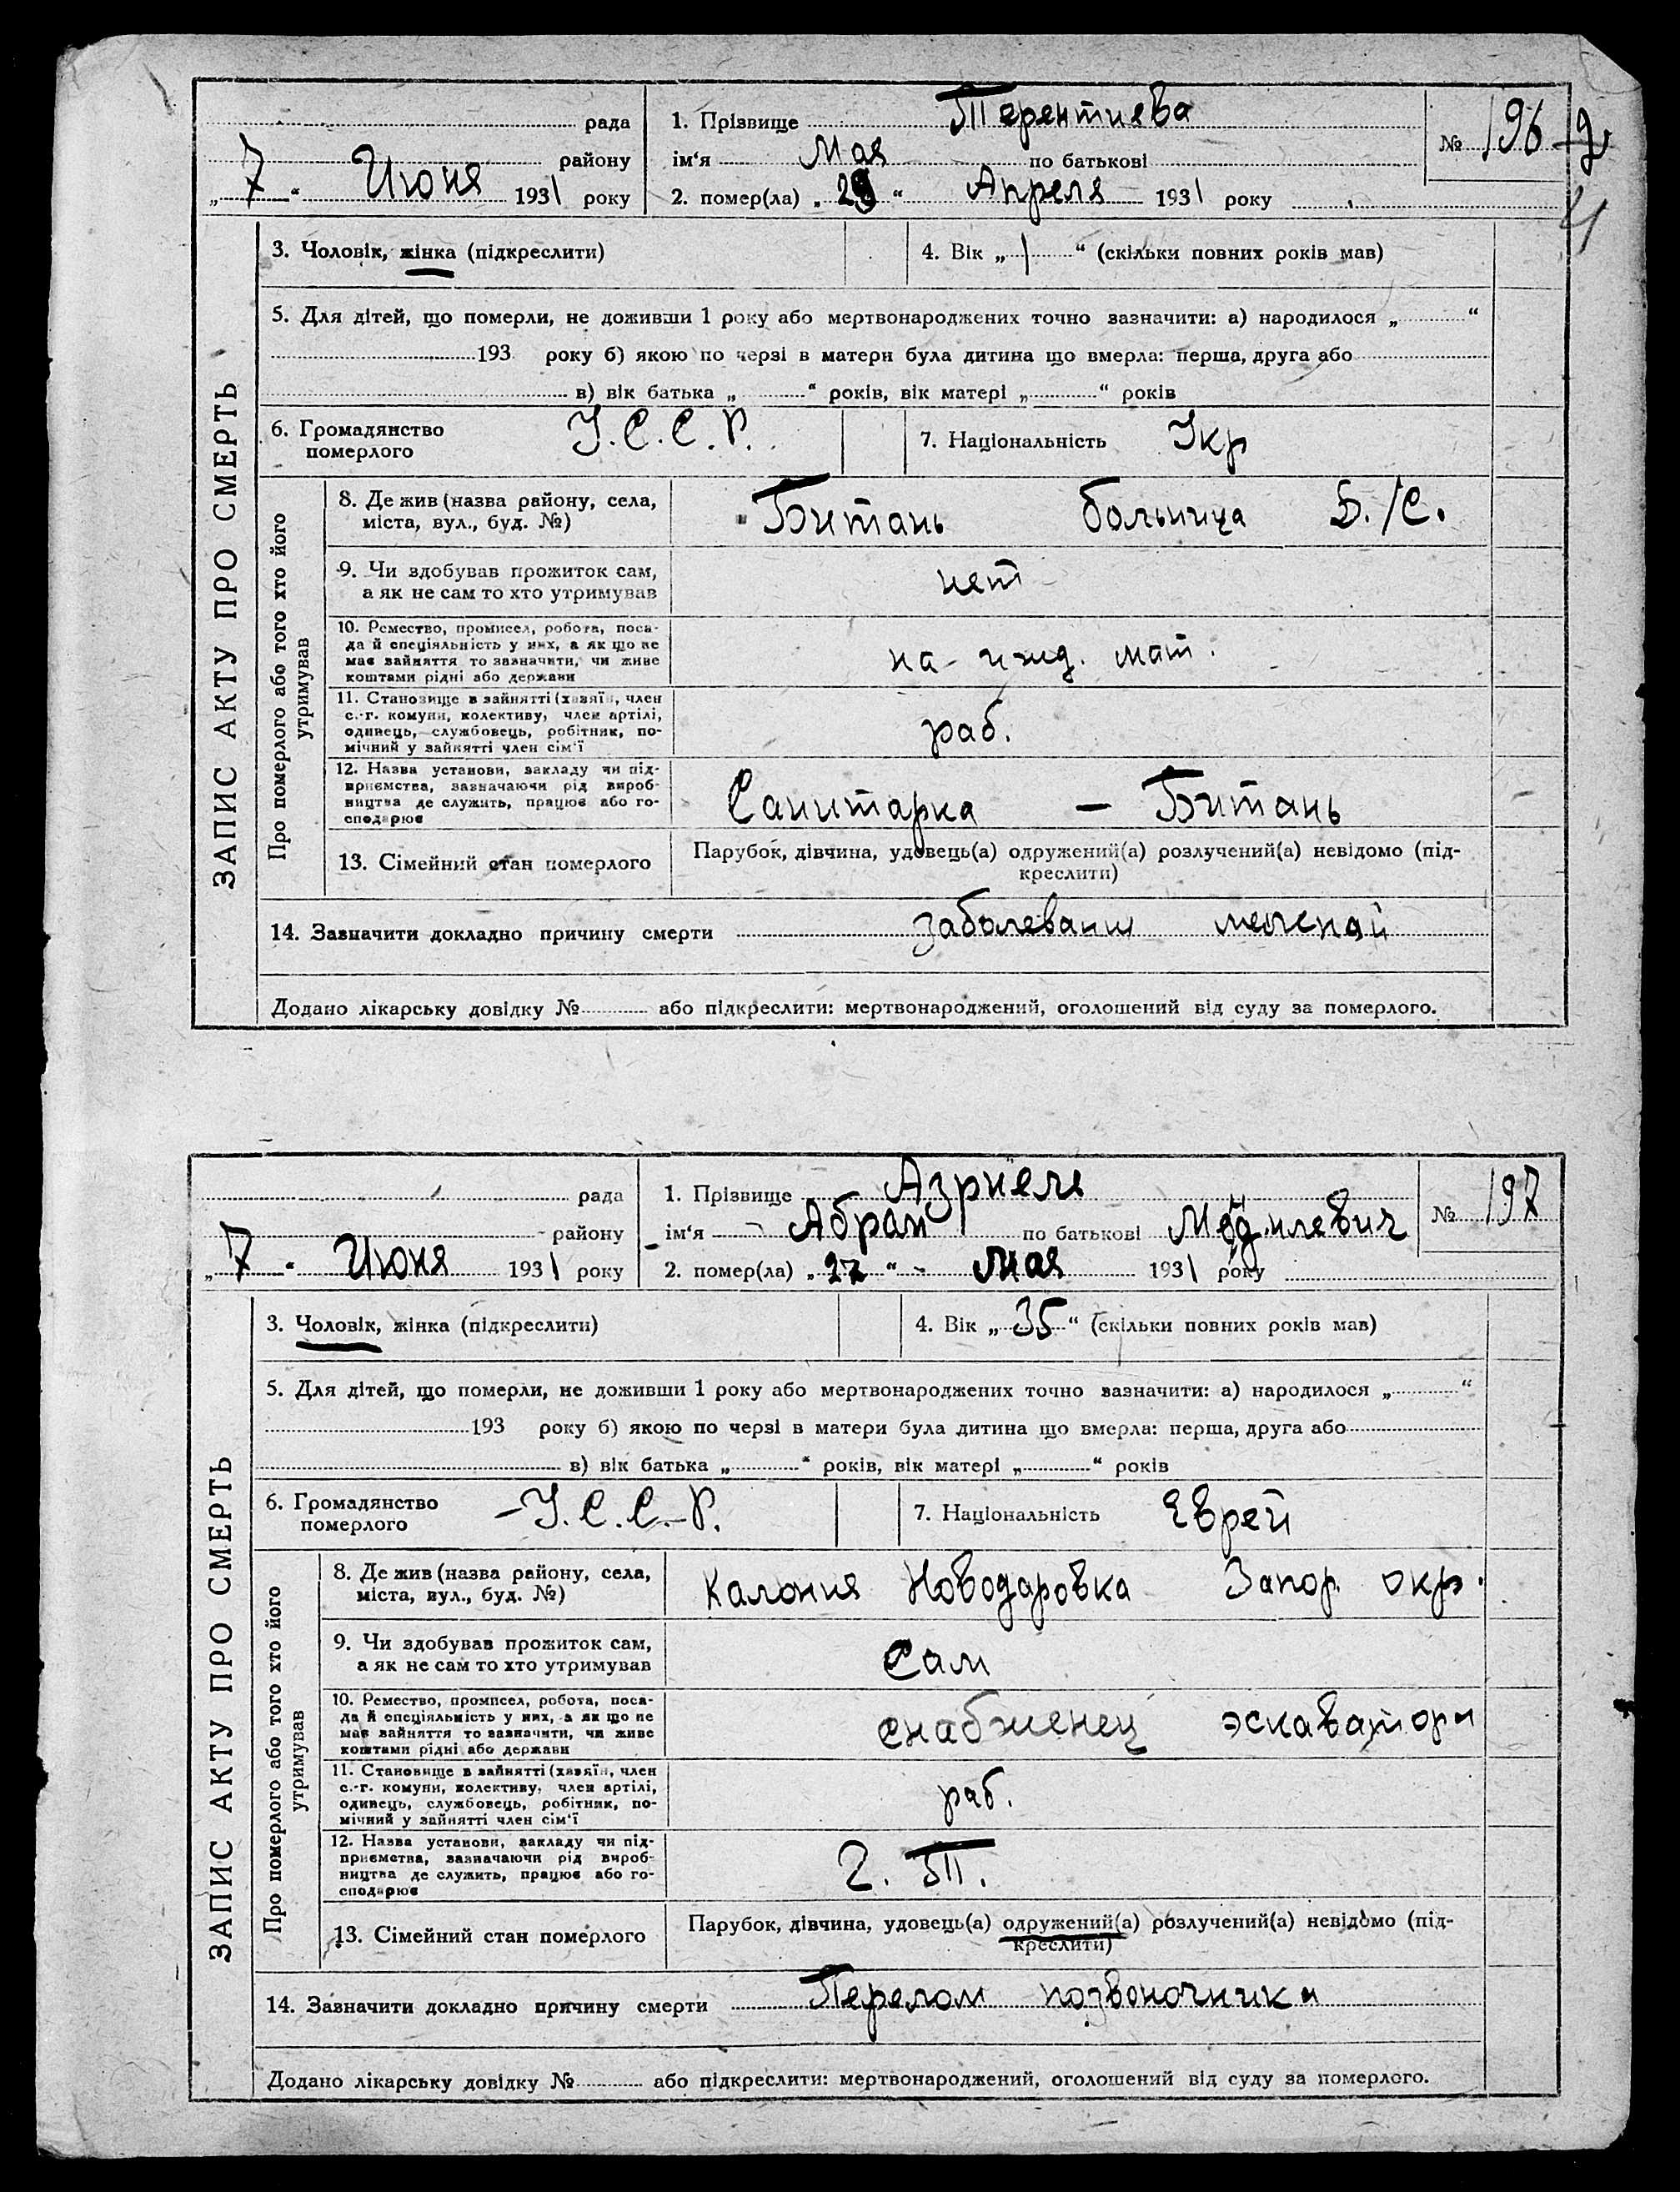 рада
району
„ 7 “ Июня 1931 року
1. Прізвище Терентиева
ім‘я Мая по батькові
2. помер(ла) „ 29 “ Апреля 1931 року
№ 196
ЗАПИС АКТУ ПРО СМЕРТЬ
3. Чоловік, жінка (підкреслити)
4. Вік „ 1 “ (скільки повних років мав)
5. Для дітей, що померли, не доживши 1 року або мертвонароджених точно зазначити: а) народилося „ “
193 року б) якою по черзі в матери була дитина що вмерла: перша, друга або
в) вік батька „ “ років, вік матері „ “ років
6. Громадянство
померлого
У.С.С.Р.
7. Національність Укр
Про померлого або того хто його
утримував
8. Де жив (назва району, села,
міста, вул., буд. №)
Битань больница Д./С.
9. Чи здобував прожиток сам,
а як не сам то хто утримував
нет
10. Ремество, промисел, робота, поса-
да й спеціяльність у них, а як що не
має зайняття то зазначити, чи живе
коштами рідні або держави
на ижд. мат.
11. Становище в зайнятті (хазяїн, член
с.-г. комуни, колективу, член артілі,
одинець, службовець, робітник, по-
мічний у зайнятті член сім‘ї
раб.
12. Назва установи, закладу чи під-
приємства, зазначаючи рід вироб-
ництва де служить, працює або го-
сподарює
Санитарка — Битань
13. Сімейний стан померлого
Парубок, дівчина, удовець(а) одружений(а) розлучений(а) невідомо (під-
креслити)
14. Зазначити докладно причину смерти заболевания
Додано лікарську довідку № або підкреслити: мертвонароджений, оголошений від суду за померлого.
рада
району
„ 7 “ Июня 1931 року
1. Прізвище Азриеля
ім‘я Абрам по батькові
2. помер(ла) „ 27 “ Мая 1931 року
№ 197
ЗАПИС АКТУ ПРО СМЕРТЬ
3. Чоловік, жінка (підкреслити)
4. Вік „ 35 “ (скільки повних років мав)
5. Для дітей, що померли, не доживши 1 року або мертвонароджених точно зазначити: а) народилося „ “
193 року б) якою по черзі в матери була дитина що вмерла: перша, друга або
в) вік батька „ “ років, вік матері „ “ років
6. Громадянство
померлого
У.С.С.Р.
7. Національність Еврей
Про померлого або того хто його
утримував
8. Де жив (назва району, села,
міста, вул., буд. №)
Калония Новодаровка Запор. окр.
9. Чи здобував прожиток сам,
а як не сам то хто утримував
Сам
10. Ремество, промисел, робота, поса-
да й спеціяльність у них, а як що не
має зайняття то зазначити, чи живе
коштами рідні або держави
снабженец эскаватори
11. Становище в зайнятті (хазяїн, член
с.-г. комуни, колективу, член артілі,
одинець, службовець, робітник, по-
мічний у зайнятті член сім‘ї
раб.
12. Назва установи, закладу чи під-
приємства, зазначаючи рід вироб-
ництва де служить, працює або го-
сподарює
2. П.
13. Сімейний стан померлого
Парубок, дівчина, удовець(а) одружений(а) розлучений(а) невідомо (під-
креслити)
14. Зазначити докладно причину смерти Перелом позвоночника
Додано лікарську довідку № або підкреслити: мертвонароджений, оголошений від суду за померлого.